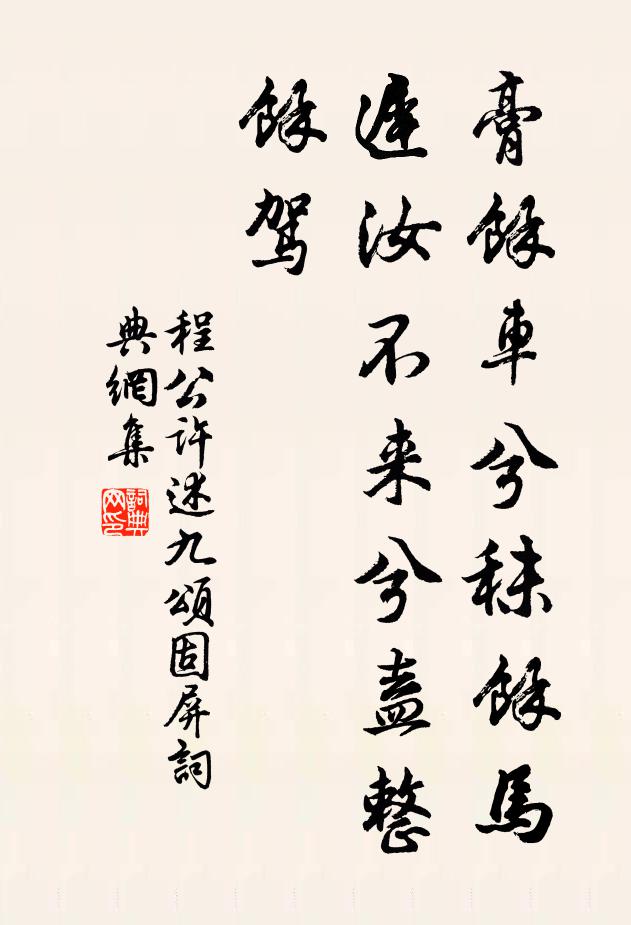 膏餘車兮秣餘馬
遲汝不来兮盍整
餘駕
程公許述九頌固屏詞
典網集
詞典網印